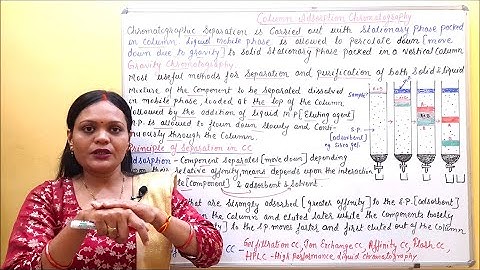 Column Adsorption Chromatography
Chromatographic Separation is Carried out with Stationary Phase packed
in Column. Liquid mobile phase is allowed to percolate down [move
down due to gravity] to solid Stationary phase packed in a Vertical Column
Gravity Chromatography.
Most useful methods for Separation and purification of both Solid & Liquid
Mixture of the Component to be separated dissolved
in mobile phase, loaded at the top of the Column
followed by the addition of liquid M.P [Eluting agent]
M.P is allowed to flown down slowly and Conti-
nuously through the Column.
Sample
A+B
S.P.
(adsorbent)
eg Silica gel
Principle of Separation in CC
Adsorption - Component separates [move down] depending
upon their relative affinity, means depends upon the interaction
[Component] & adsorbent & Solvent.
that are strongly adsorbed [greater affinity] to the S.P. [adsorbent]
the Column and eluted later while the Components loosely
to the S.P. moves faster and first eluted out of the Column
CC - Gel filtration CC, Ion Exchange CC, Affinity CC, Flash CC.
HPLC - High Performance liquid Chromatography